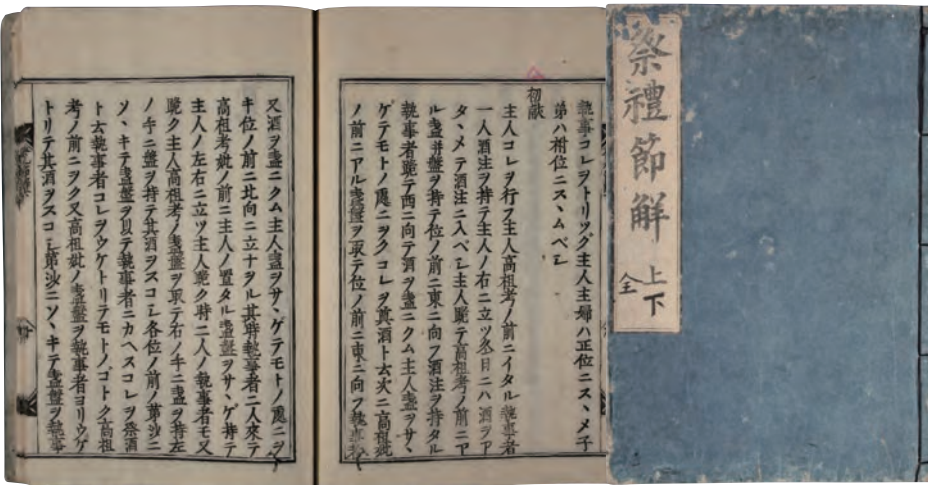 祭禮節解 上下
全
執事コレヲトリツグ主人主婦ハ正位ニスヽメ子
第ハ祔位ニスヽムベシ
初献
主人コレヲ行フ主人高祖考ノ前ニイタル執事者
一人酒注ヲ持テ主人ノ右ニ立ツ冬日ニハ酒ヲア
タヽメテ酒注ニ入ベシ主人跪テ高祖考ノ前ニア
ル盞并盤ヲ持テ位ノ前ニ東ニ向フ酒注ヲ持タル
執事者跪テ西ニ向テ酒ヲ盞ニクム主人盞ヲサヽ
ゲテモトノ處ニヲクコレヲ奠酒ト云次ニ高祖妣
ノ前ニアル盞盤ヲ取テ位ノ前ニ東ニ向フ執事者
又酒ヲ盞ニクム主人盞ヲサヽゲテモトノ處ニヲ
キ位ノ前ニ北向ニ立ナヲル其時執事者二人來テ
高祖考妣ノ前ニ主人ノ置タル盞盤ヲサヽゲ持テ
主人ノ左右ニ立ツ主人跪ク時二人ノ執事者モ又
跪ク主人高祖考ノ盞盤ヲ取テ右ノ手ニ盞ヲ持左
ノ手ニ盤ヲ持テ其酒ヲスコシ各位ノ前ノ第沙ニ
ソヽキテ盞盤ヲ以テ執事者ニカヘスコレヲ祭酒
ト云執事者コレヲウケトリテモトノコトク高祖
考ノ前ニヲク又高祖妣ノ盞盤ヲ執事者ヨリウケ
トリテ其酒ヲスコシ第沙ニソヽキテ盞盤ヲ執事